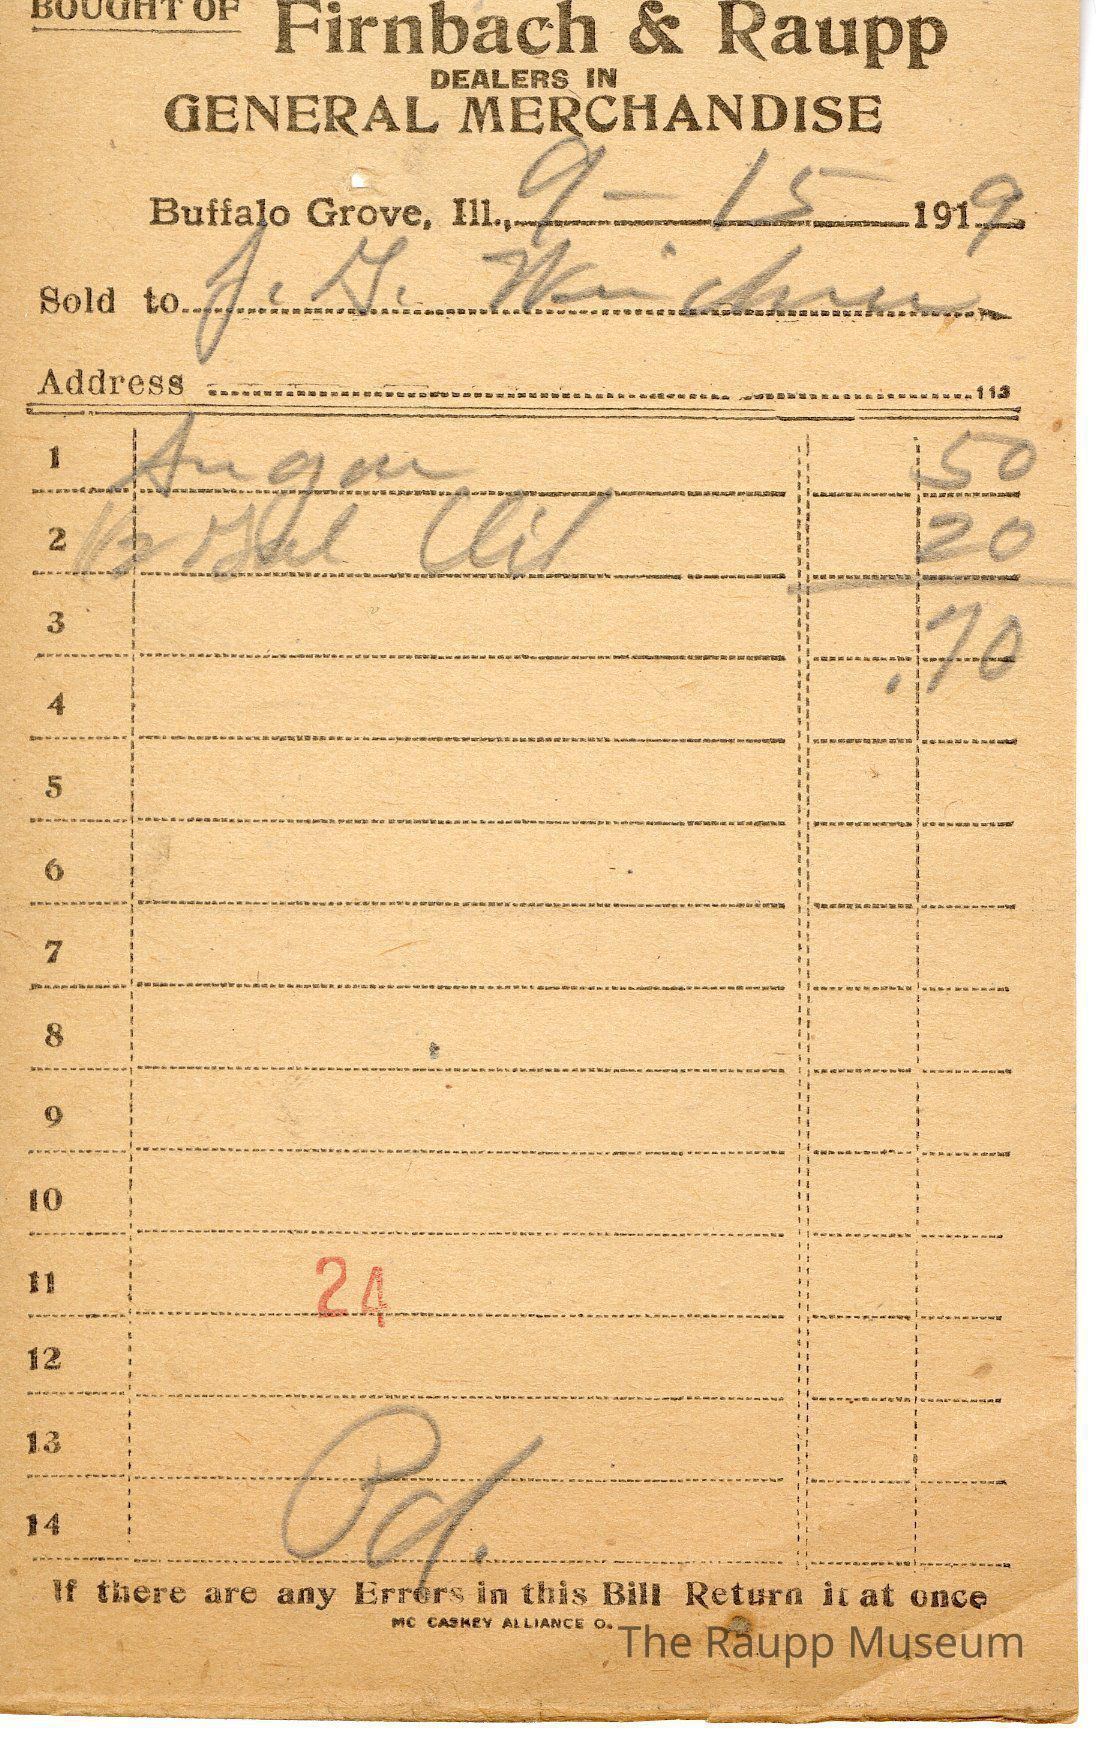 BOUGHT OF Firnbach & Raupp
DEALERS IN
GENERAL MERCHANDISE
Buffalo Grove, Ill., 9 - 15 1919
Sold to J. G.
Address 113
1 Sugar 50
2 1/2 Gal Oil 20
3 .70
4
5
6
7
8
9
10
11 24
12
13
14 Pd.
If there are any Errors in this Bill Return it at once
MC CASKEY ALLIANCE O.
The Raupp Museum